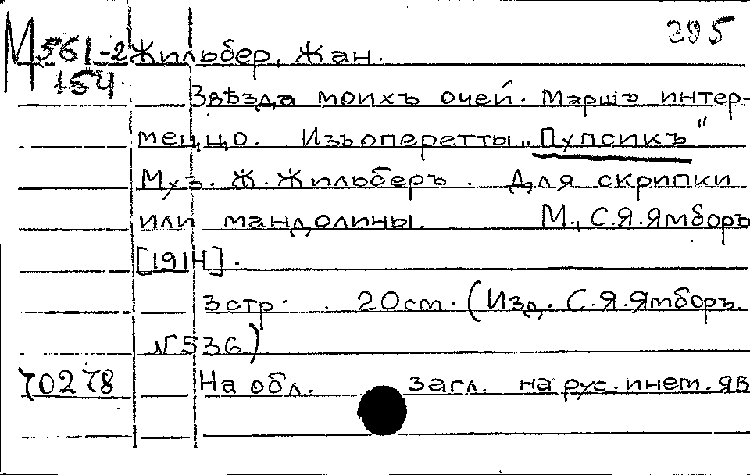 295
М 561-2 Жильбер, Жан.
154
Звѣзда моихъ очей. Маршъ интер-
меццо. Изъ оперетты „Пупсикъ"
Муз. Ж. Жильберъ. Для скрипки
или мандолины. М., С.Я.Ямборъ
[1914].
3 стр. 20см. (Изд. С.Я.Ямборъ.
N 536)
70278 На обл. загл. на рус. и нем. яв